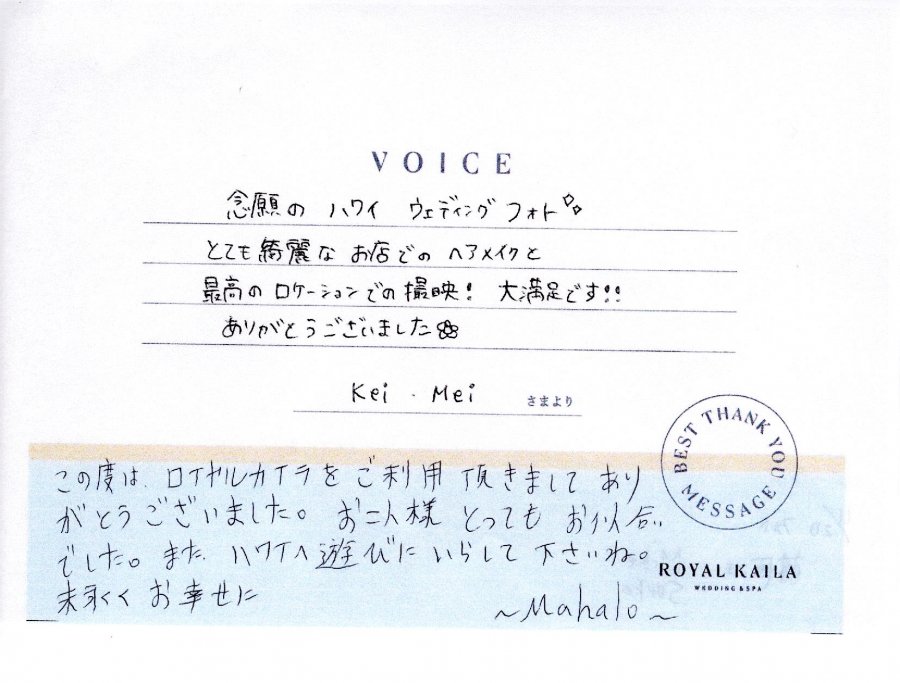 VOICE
念願の ハワイ ウェディング フォト
とても綺麗な お店での ヘアメイクと
最高の ロケーションでの撮映! 大満足です!!
ありがとうございました
Kei . Mei さまより
BEST THANK YOU
MESSAGE
この度は、ロイヤルカイラをご利用 頂きまして あり
がとうございました。お二人様 とっても お似合い
でした。また、ハワイへ遊びに いらして 下さいね。
末永く お幸せに
~Mahalo~
ROYAL KAILA
WEDDING & SPA